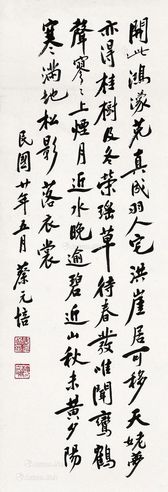 開此鴻濛荒真成羽人宅洪崖居可移天姥夢
亦得桂樹及冬榮瑤草待春發唯聞鸞鶴
聲寥寥上煙月近水晚逾碧近山秋未黃夕陽
寒滿地松影落衣裳
民國廿年五月 蔡元培